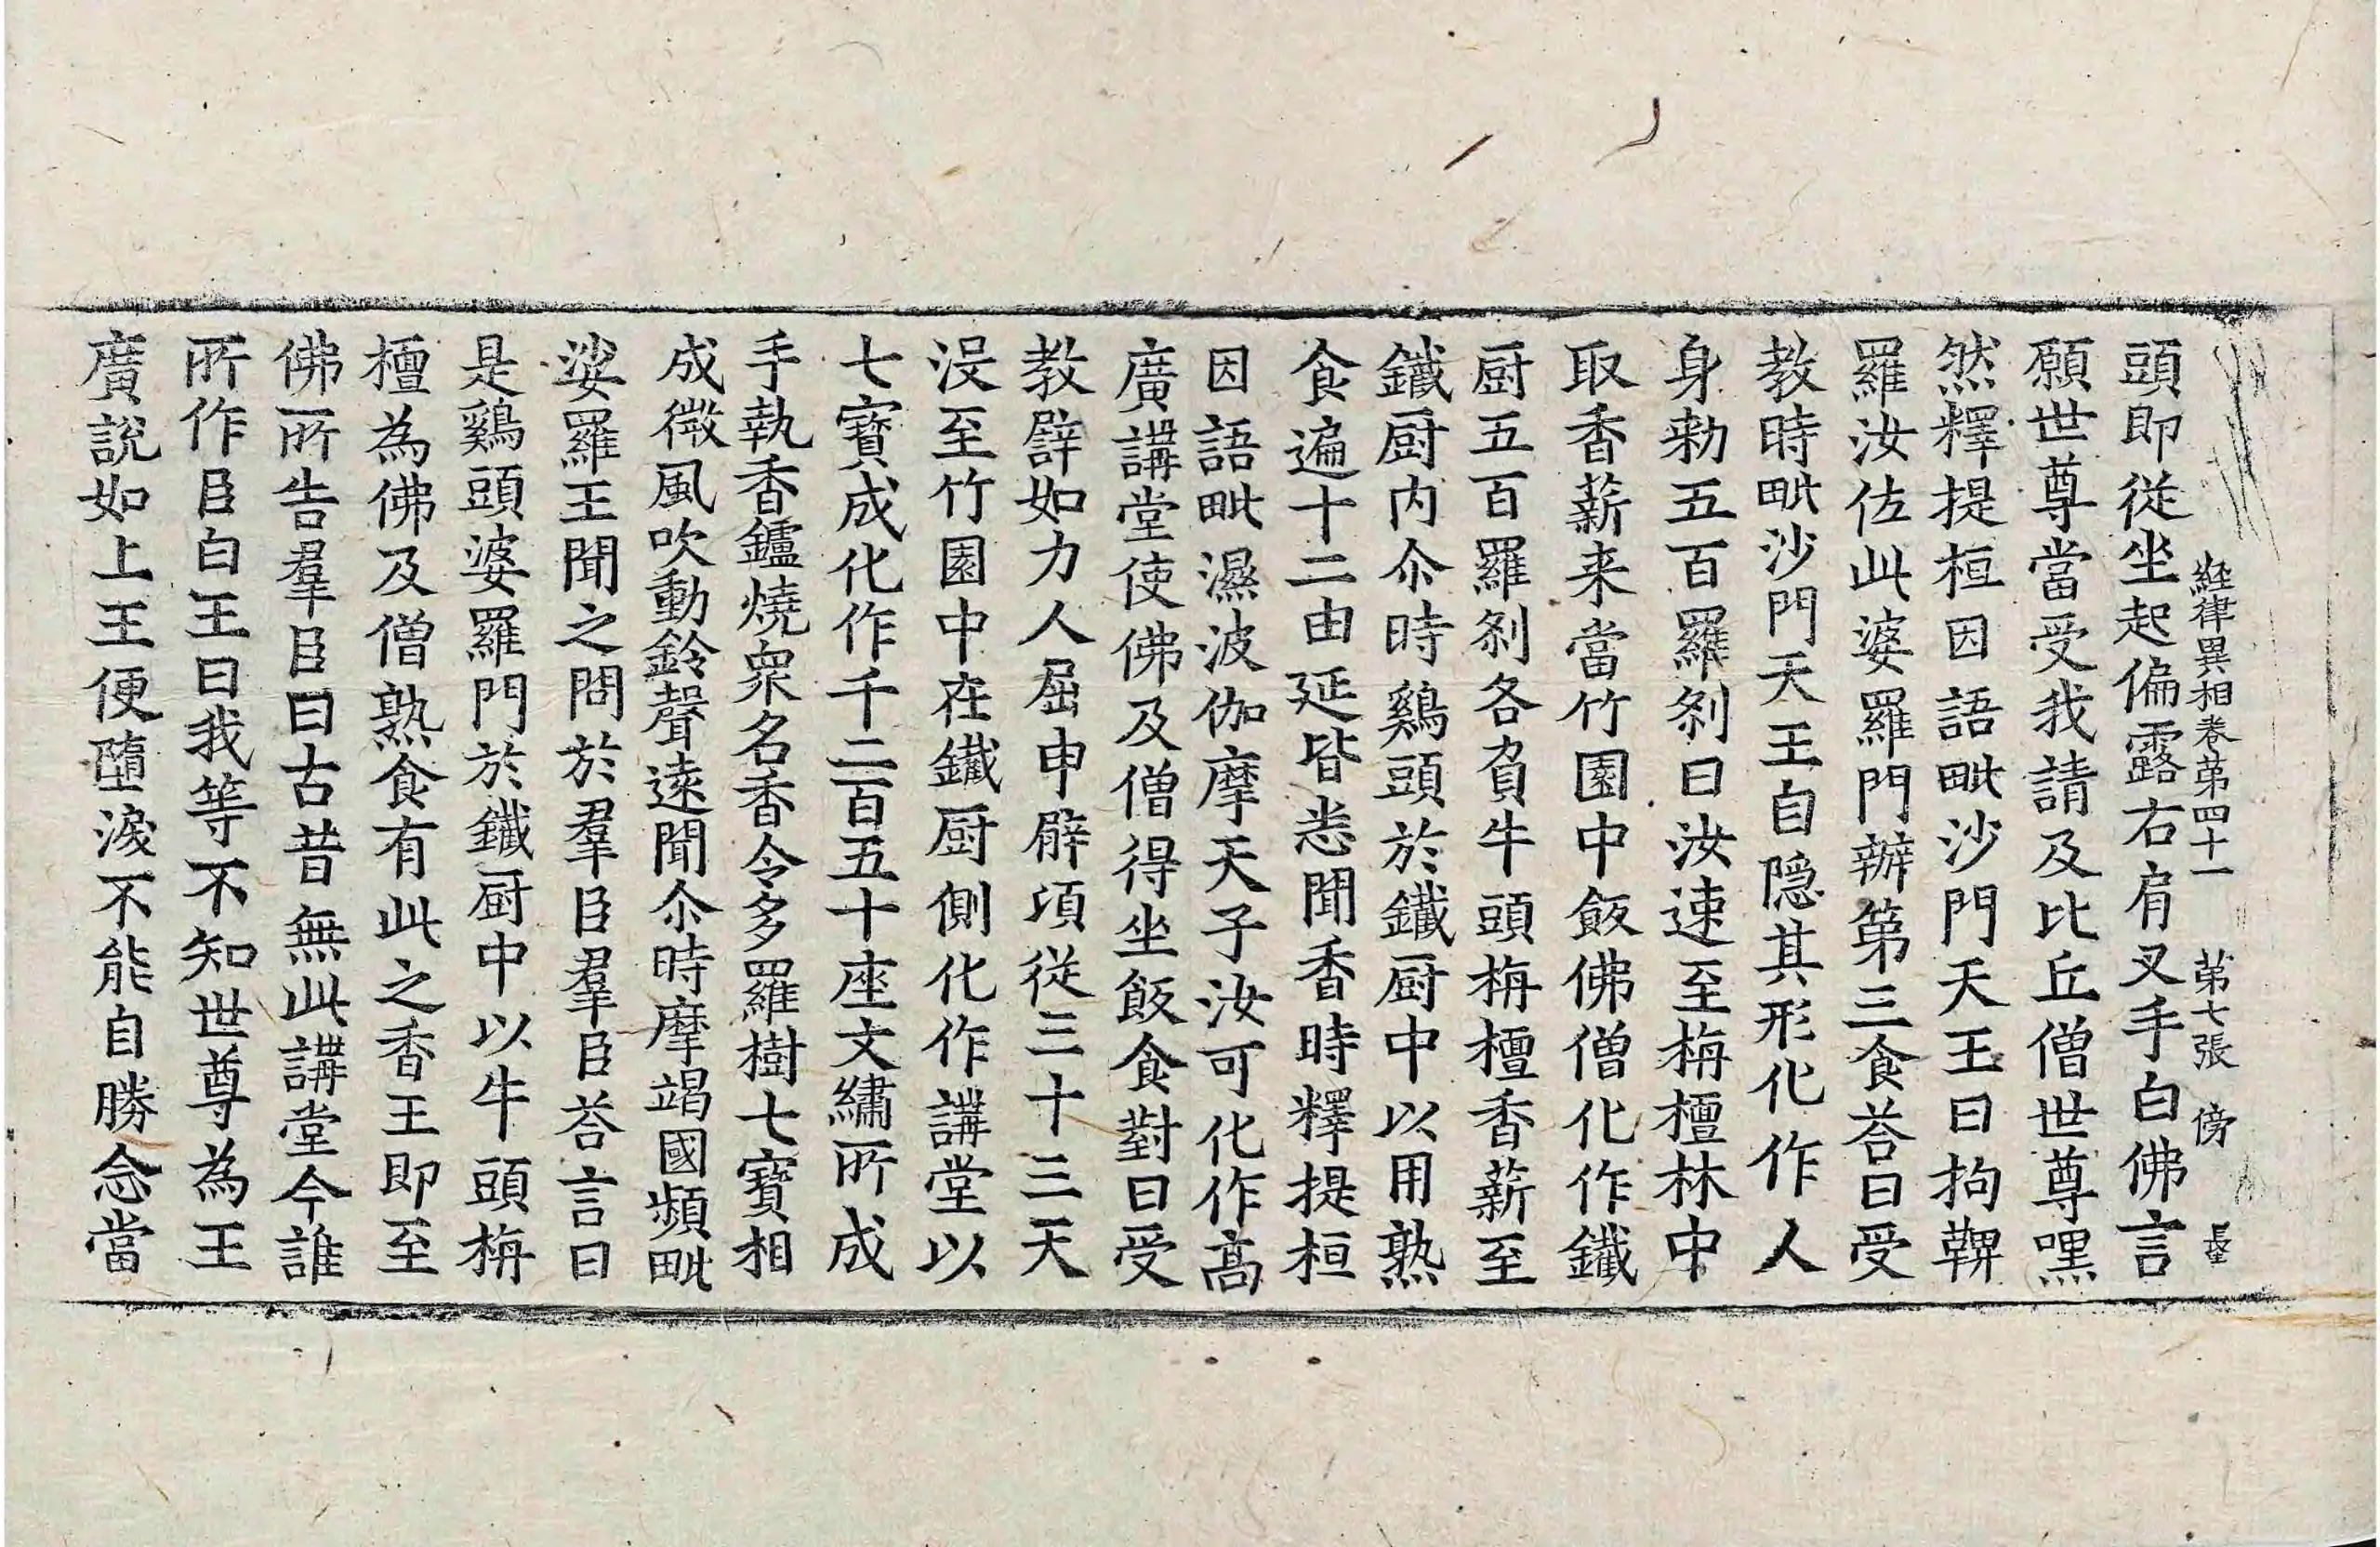 經律異相卷第四十一 第七張 傍
頭即從坐起偏露右肩叉手白佛言
願世尊當受我請及比丘僧世尊嘿
然釋提桓因語毗沙門天王曰拘鞞
羅汝佐此婆羅門辦第三食荅曰受
教時毗沙門天王自隱其形化作人
身勑五百羅剎曰汝速至栴檀林中
取香薪来當竹園中飯佛僧化作鐵
厨五百羅剎各負牛頭栴檀香薪至
鐵厨内尒時鷄頭於鐵厨中以用熟
食遍十二由延皆悉聞香時釋提桓
因語毗濕波伽摩天子汝可化作高
廣講堂使佛及僧得坐飯食對曰受
教譬如力人屈申臂頃從三十三天
没至竹園中在鐵厨側化作講堂以
七寶成化作千二百五十座文繡所成
手執香鑪燒衆名香令多羅樹七寶相
成微風吹動鈴聲遠聞尒時摩竭國頻毗
娑羅王聞之問於羣臣羣臣荅言曰
是鷄頭婆羅門於鐵厨中以牛頭栴
檀為佛及僧熟食有此之香王即至
佛所告羣臣曰古昔無此講堂今誰
所作臣白王曰我等不知世尊為王
廣說如上王便墮淚不能自勝念當